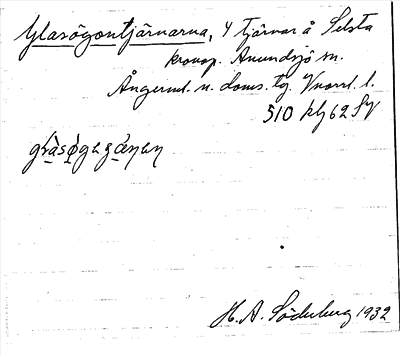 Glasögontjärnarna, 4 tjärnar å Selsta
kronop. Anundsjö sn.
Ångerml. n. doms. tg. Vnorrl. l.
510 klg 62 SV
H. A. Söderberg 1932